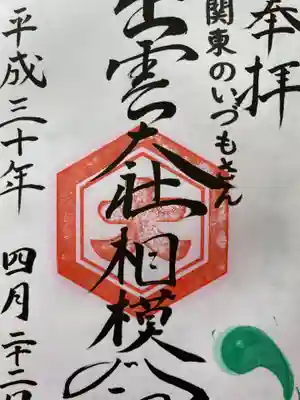 奉拝
関東のいづもさん
出雲大社相模
平成三十年 四月二十二日